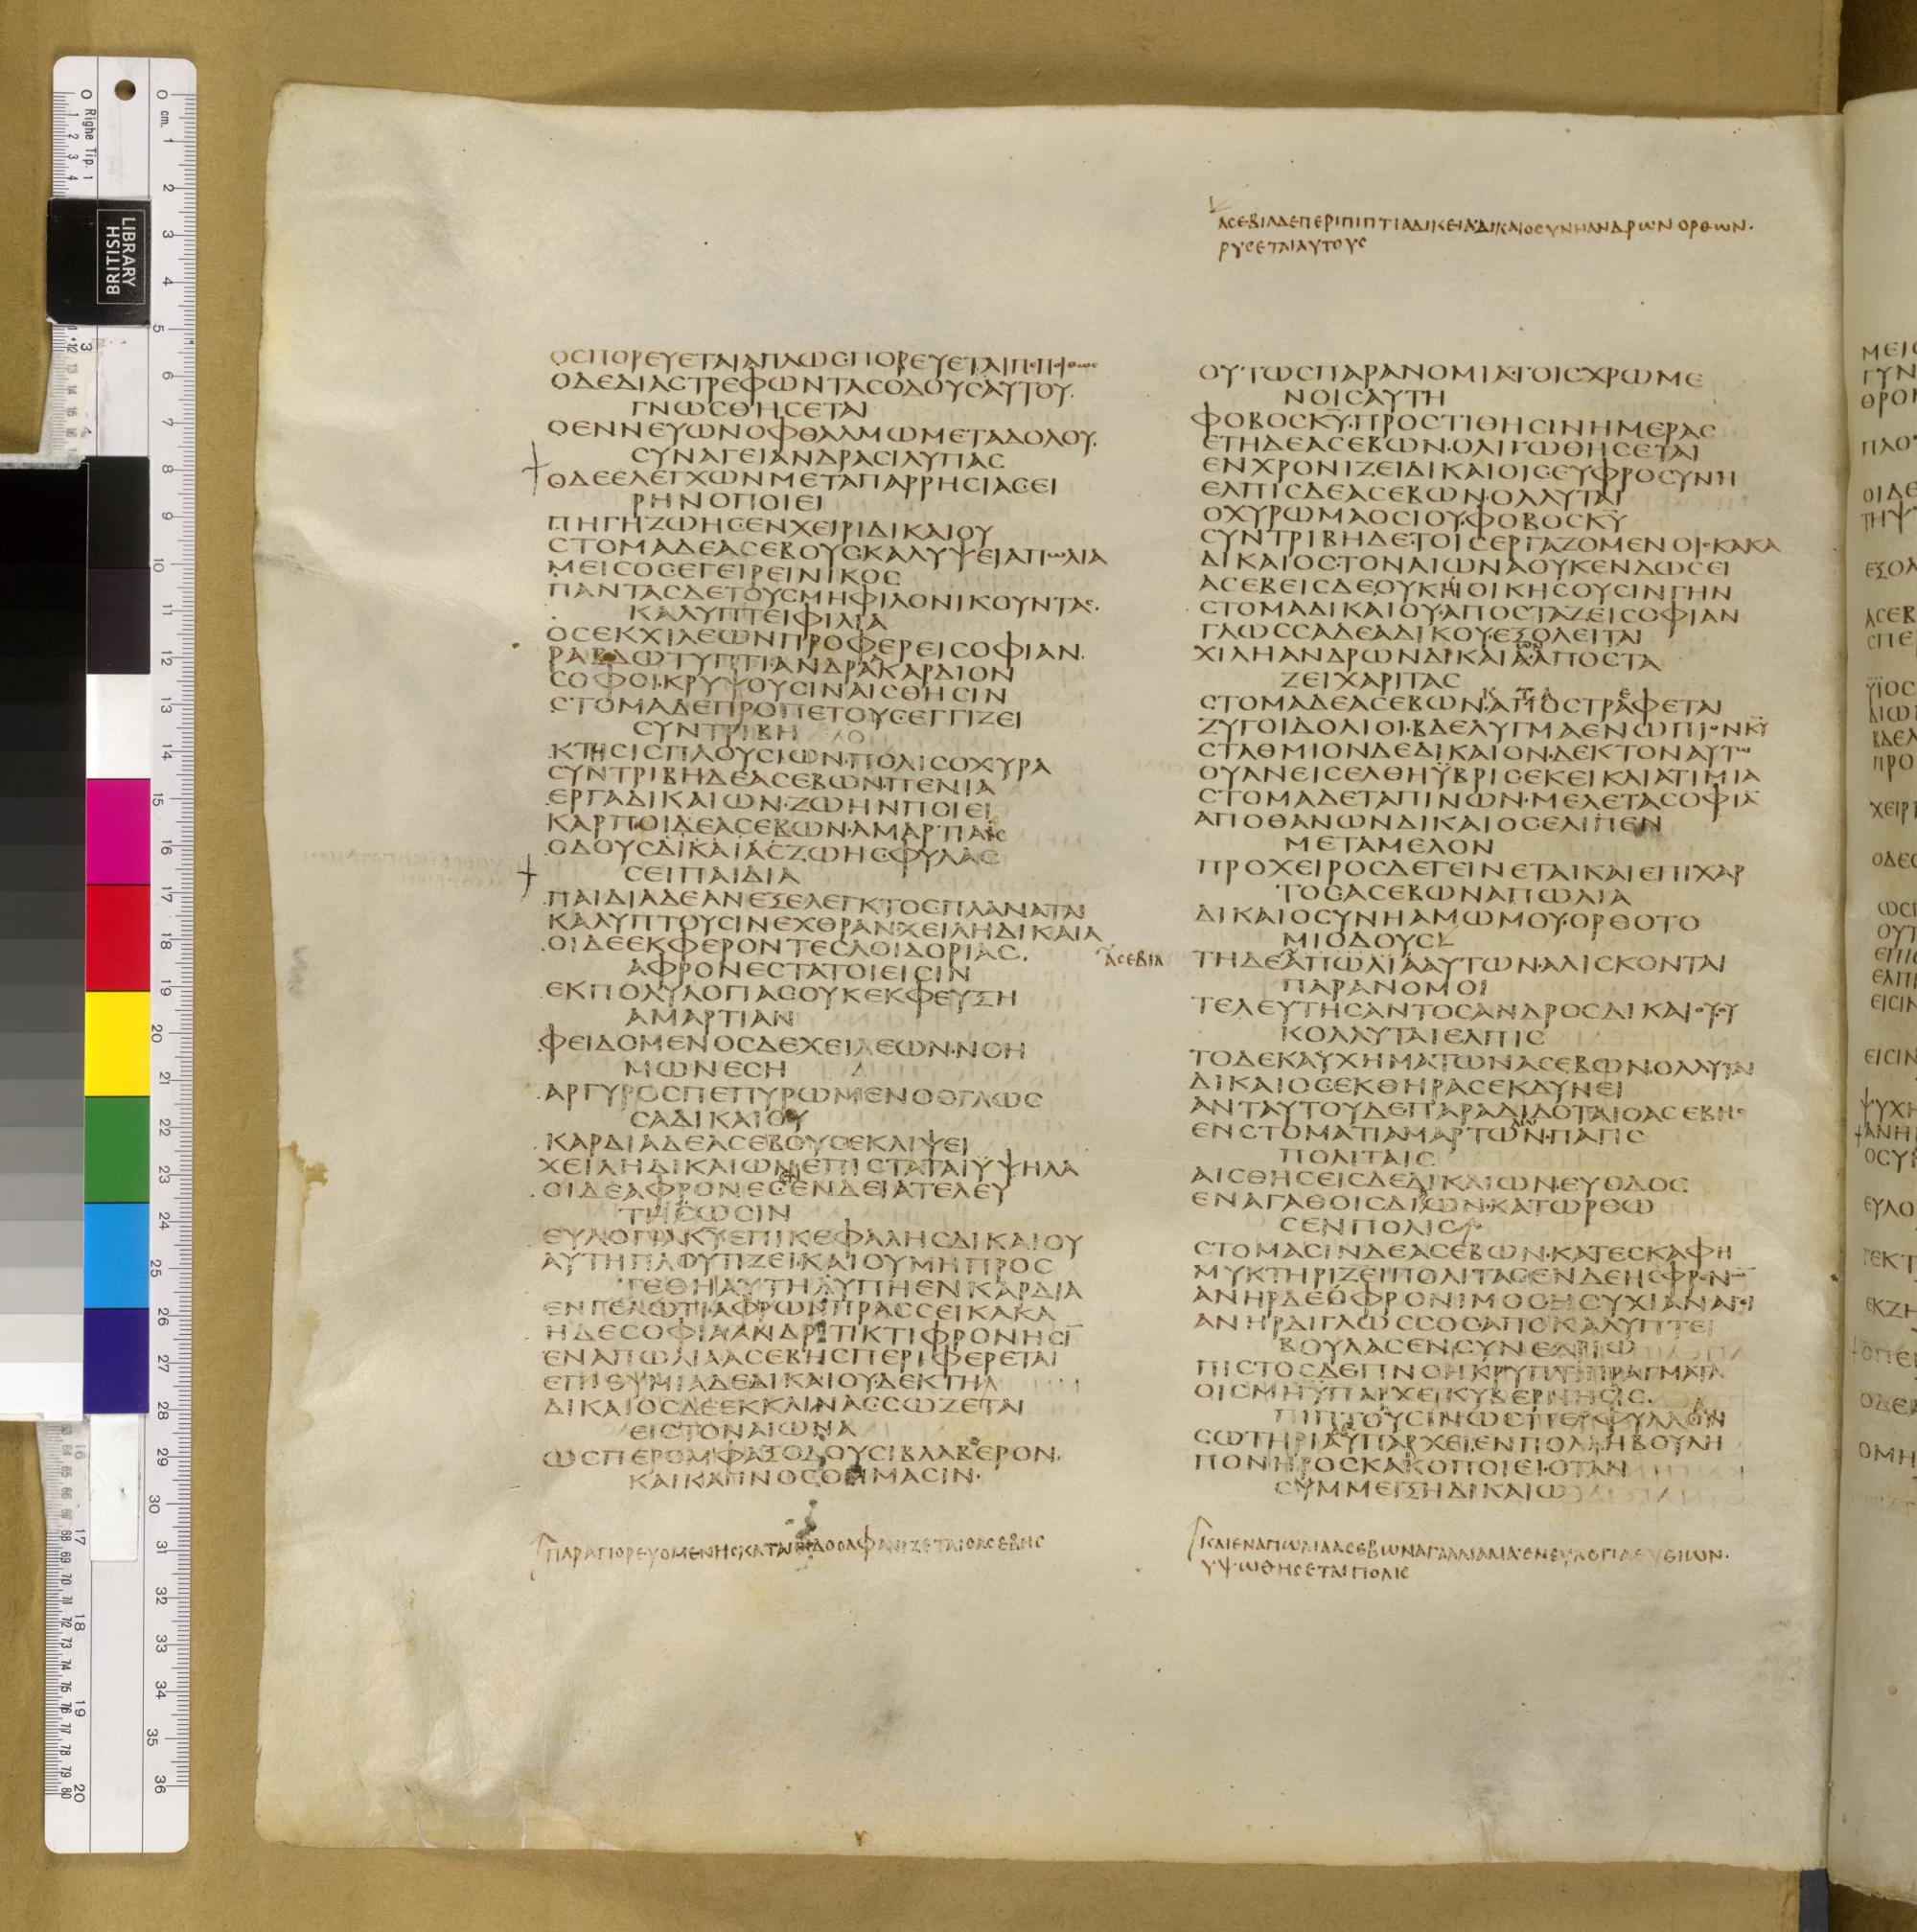 ΑϹΕΒΙΑΔΕΠΕΡΙΠΙΠΤΙΑΔΙΚΕΙΑΔΙΚΑΙΟϹΥΝΗΑΝΔΡΩΝΟΡΘΩΝ·
ΡΥϹΕΤΑΙΑΥΤΟΥϹ
ΟϹΠΟΡΕΥΕΤΑΙΑΠΛΩϹΠΟΡΕΥΕΤΑΙΠΕΠΟΙΘΩϹ
ΟΔΕΔΙΑϹΤΡΕΦΩΝΤΑϹΟΔΟΥϹΑΥΤΟΥ·
ΓΝΩϹΘΗϹΕΤΑΙ
ΟΕΝΝΕΥΩΝΟΦΘΑΛΜΩΜΕΤΑΔΟΛΟΥ·
ϹΥΝΑΓΕΙΑΝΔΡΑϹΙΛΥΠΑϹ
ΟΔΕΕΛΕΓΧΩΝΜΕΤΑΠΑΡΡΗϹΙΑϹΕΙ
ΡΗΝΟΠΟΙΕΙ
ΠΗΓΗΖΩΗϹΕΝΧΕΙΡΙΔΙΚΑΙΟΥ
ϹΤΟΜΑΔΕΑϹΕΒΟΥϹΚΑΛΥΨΕΙΑΠΩΛΙΑ
ΜΕΙϹΟϹΕΓΕΙΡΕΙΝΙΚΟϹ
ΠΑΝΤΑϹΔΕΤΟΥϹΜΗΦΙΛΟΝΙΚΟΥΝΤΑϹ·
ΚΑΛΥΠΤΕΙΦΙΛΙΑ
ΟϹΕΚΧΙΛΕΩΝΠΡΟΦΕΡΕΙϹΟΦΙΑΝ·
ΡΑΒΔΩΤΥΠΤΙΑΝΔΡΑΚΑΡΔΙΟΝ
ϹΟΦΟΙ·ΚΡΥΨΟΥϹΙΝΑΙϹΘΗϹΙΝ
ϹΤΟΜΑΔΕΠΡΟΠΕΤΟΥϹΕΓΓΙΖΕΙ
ϹΥΝΤΡΙΒΗ
ΚΤΗϹΙϹΠΛΟΥϹΙΩΝ·ΠΟΛΙϹΟΧΥΡΑ
ϹΥΝΤΡΙΒΗΔΕΑϹΕΒΩΝ·ΠΕΝΙΑ
ΕΡΓΑΔΙΚΑΙΩΝ·ΖΩΗΝΠΟΙΕΙ
ΚΑΡΠΟΙΔΕΑϹΕΒΩΝ·ΑΜΑΡΤΙΑϹ
ΟΔΟΥϹΔΙΚΑΙΑϹΖΩΗϹΦΥΛΑϹ
ϹΕΙΠΑΙΔΙΑ
ΠΑΙΔΙΑΔΕΑΝΕΞΕΛΕΓΚΤΟϹΠΛΑΝΑΤΑΙ
ΚΑΛΥΠΤΟΥϹΙΝΕΧΘΡΑΝΧΕΙΛΗΔΙΚΑΙΑ
ΟΙΔΕΕΚΦΕΡΟΝΤΕϹΛΟΙΔΟΡΙΑϹ·
ΑΦΡΟΝΕϹΤΑΤΟΙΕΙϹΙΝ
ΕΚΠΟΛΥΛΟΓΙΑϹΟΥΚΕΚΦΕΥΞΗ
ΑΜΑΡΤΙΑΝ
ΦΕΙΔΟΜΕΝΟϹΔΕΧΕΙΛΕΩΝ·ΝΟΗ
ΜΩΝΕϹΗ
ΑΡΓΥΡΟϹΠΕΠΥΡΩΜΕΝΟϹΓΛΩϹ
ϹΑΔΙΚΑΙΟΥ
ΚΑΡΔΙΑΔΕΑϹΕΒΟΥϹΕΚΛΙΨΕΙ
ΧΕΙΛΗΔΙΚΑΙΩΝΕΠΙϹΤΑΤΑΙΥΨΗΛΑ
ΟΙΔΕΑΦΡΟΝΕϹΕΝΔΕΙΑΤΕΛΕΥ
ΤΗϹΩϹΙΝ
ΕΥΛΟΓΙΑΚΥΕΠΙΚΕΦΑΛΗϹΔΙΚΑΙΟΥ
ΑΥΤΗΠΛΟΥΤΙΖΕΙ·ΚΑΙΟΥΜΗΠΡΟϹ
ΤΕΘΗΑΥΤΗΛΥΠΗΕΝΚΑΡΔΙΑ
ΕΝΓΕΛΩΤΙΑΦΡΩΝΠΡΑϹϹΕΙΚΑΚΑ
ΗΔΕϹΟΦΙΑΑΝΔΡΙΤΙΚΤΙΦΡΟΝΗϹΙ
ΕΝΑΠΩΛΙΑΑϹΕΒΗϹΠΕΡΙΦΕΡΕΤΑΙ
ΕΠΙΘΥΜΙΑΔΕΔΙΚΑΙΟΥΔΕΚΤΗ
ΔΙΚΑΙΟϹΔΕΕΚΚΛΙΝΑϹϹΩΖΕΤΑΙ
ΕΙϹΤΟΝΑΙΩΝΑ
ΩϹΠΕΡΟΜΦΑΞΟΔΟΥϹΙΒΛΑΒΕΡΟΝ·
ΚΑΙΚΑΠΝΟϹΟΜΜΑϹΙΝ·
ΠΑΡΑΠΟΡΕΥΟΜΕΝΗϹΚΑΤΑΙΓΙΔΟϹΑΦΑΝΙΖΕΤΑΙΟΑϹΕΒΗϹ
ΟΥΤΩϹΠΑΡΑΝΟΜΙΑΤΟΙϹΧΡΩΜΕ
ΝΟΙϹΑΥΤΗ
ΦΟΒΟϹΚΥ·ΠΡΟϹΤΙΘΗϹΙΝΗΜΕΡΑϹ
ΕΤΗΔΕΑϹΕΒΩΝ·ΟΛΙΓΩΘΗϹΕΤΑΙ
ΕΝΧΡΟΝΙΖΕΙΔΙΚΑΙΟΙϹΕΥΦΡΟϹΥΝΗ
ΕΛΠΙϹΔΕΑϹΕΒΩΝ·ΟΛΛΥΤΑΙ
ΟΧΥΡΩΜΑΟϹΙΟΥ·ΦΟΒΟϹΚΥ
ϹΥΝΤΡΙΒΗΔΕΤΟΙϹΕΡΓΑΖΟΜΕΝΟΙϹΚΑΚΑ
ΔΙΚΑΙΟϹΤΟΝΑΙΩΝΑΟΥΚΕΝΔΩϹΕΙ
ΑϹΕΒΕΙϹΔΕΟΥΚΗΟΙΚΗϹΟΥϹΙΝΓΗΝ
ϹΤΟΜΑΔΙΚΑΙΟΥ·ΑΠΟϹΤΑΖΕΙϹΟΦΙΑΝ
ΓΛΩϹϹΑΔΕΑΔΙΚΟΥ·ΕΞΟΛΕΙΤΑΙ
ΧΙΛΗΑΝΔΡΩΝΔΙΚΑΙΑΑΠΟϹΤΑ
ΖΕΙΧΑΡΙΤΑϹ
ϹΤΟΜΑΔΕΑϹΕΒΩΝ·ΑΠΟϹΤΡΑΦΕΤΑΙ
ΖΥΓΟΙΔΟΛΙΟΙ·ΒΔΕΛΥΓΜΑΕΝΩΠΙΟΝΚΥ
ϹΤΑΘΜΙΟΝΔΕΔΙΚΑΙΟΝ·ΔΕΚΤΟΝΑΥΤΩ
ΟΥΑΝΕΙϹΕΛΘΗΫΒΡΙϹΕΚΕΙΚΑΙΑΤΙΜΙΑ
ϹΤΟΜΑΔΕΤΑΠΙΝΩΝ·ΜΕΛΕΤΑϹΟΦΙΑ
ΑΠΟΘΑΝΩΝΔΙΚΑΙΟϹΕΛΙΠΕΝ
ΜΕΤΑΜΕΛΟΝ
ΠΡΟΧΕΙΡΟϹΔΕΓΕΙΝΕΤΑΙΚΑΙΕΠΙΧΑΡ
ΤΟϹΑϹΕΒΩΝΑΠΩΛΙΑ
ΔΙΚΑΙΟϹΥΝΗΑΜΩΜΟΥ·ΟΡΘΟΤΟ
ΜΙΟΔΟΥϹ
ΑϹΕΒΙΑ
ΤΗΔΕΑΠΩΛΙΑΑΥΤΩΝ·ΑΛΙϹΚΟΝΤΑΙ
ΠΑΡΑΝΟΜΟΙ
ΤΕΛΕΥΤΗϹΑΝΤΟϹΑΝΔΡΟϹΔΙΚΑΙΟΥ·ΟΥ
ΚΟΛΛΥΤΑΙΕΛΠΙϹ
ΤΟΔΕΚΑΥΧΗΜΑΤΩΝΑϹΕΒΩΝ·ΟΛΛΥΤΑΙ
ΔΙΚΑΙΟϹΕΚΘΗΡΑϹΕΚΔΥΝΕΙ
ΑΝΤΑΥΤΟΥΔΕΠΑΡΑΔΙΔΟΤΑΙΟΑϹΕΒΗϹ
ΕΝϹΤΟΜΑΤΙΑΜΑΡΤΩΝ·ΠΑΓΙϹ
ΠΟΛΙΤΑΙϹ
ΑΙϹΘΗϹΕΙϹΔΕΔΙΚΑΙΩΝ·ΕΥΟΔΟϹ
ΕΝΑΓΑΘΟΙϹΔΙΚΩΝ·ΚΑΤΩΡΘΩ
ϹΕΝΠΟΛΙϹ
ϹΤΟΜΑϹΙΝΔΕΑϹΕΒΩΝ·ΚΑΤΕϹΚΑΦΗ
ΜΥΚΤΗΡΙΖΕΙΠΟΛΙΤΑϹΕΝΔΕΗϹΦΡΕΝΩΝ
ΑΝΗΡΔΕΦΡΟΝΙΜΟϹΗϹΥΧΙΑΝΑΓΙ
ΑΝΗΡΔΙΓΛΩϹϹΟϹΑΠΟΚΑΛΥΠΤΕΙ
ΒΟΥΛΑϹΕΝϹΥΝΕΔΡΙΩ
ΠΙϹΤΟϹΔΕΠΝΟΗΚΡΥΠΤΙΠΡΑΓΜΑΤΑ
ΟΙϹΜΗΫΠΑΡΧΕΙΚΥΒΕΡΝΗϹΙϹ·
ΠΙΠΤΟΥϹΙΝΩϹΠΕΡΦΥΛΛΟΝ
ϹΩΤΗΡΙΑΥΠΑΡΧΕΙ·ΕΝΠΟΛΛΗΒΟΥΛΗ
ΠΟΝΗΡΟϹΚΑΚΟΠΟΙΕΙ·ΟΤΑΝ
ϹΥΜΜΕΙΞΗΔΙΚΑΙΩ
ΚΑΙΕΝΑΠΩΛΙΑΑϹΕΒΩΝΑΓΑΛΛΙΑΜΑ·ΕΝΕΥΛΟΓΙΑΕΥΘΙΩΝ·
ΥΨΩΘΗϹΕΤΑΙΠΟΛΙϹ
BRITISH
LIBRARY
Righe Tip. 1
cm.